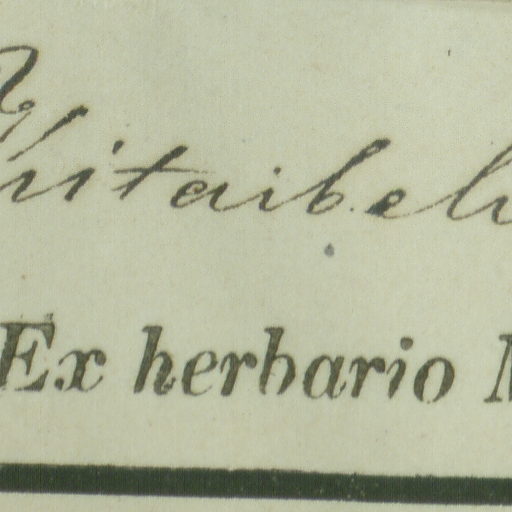 Kitaibeli
Ex herbario